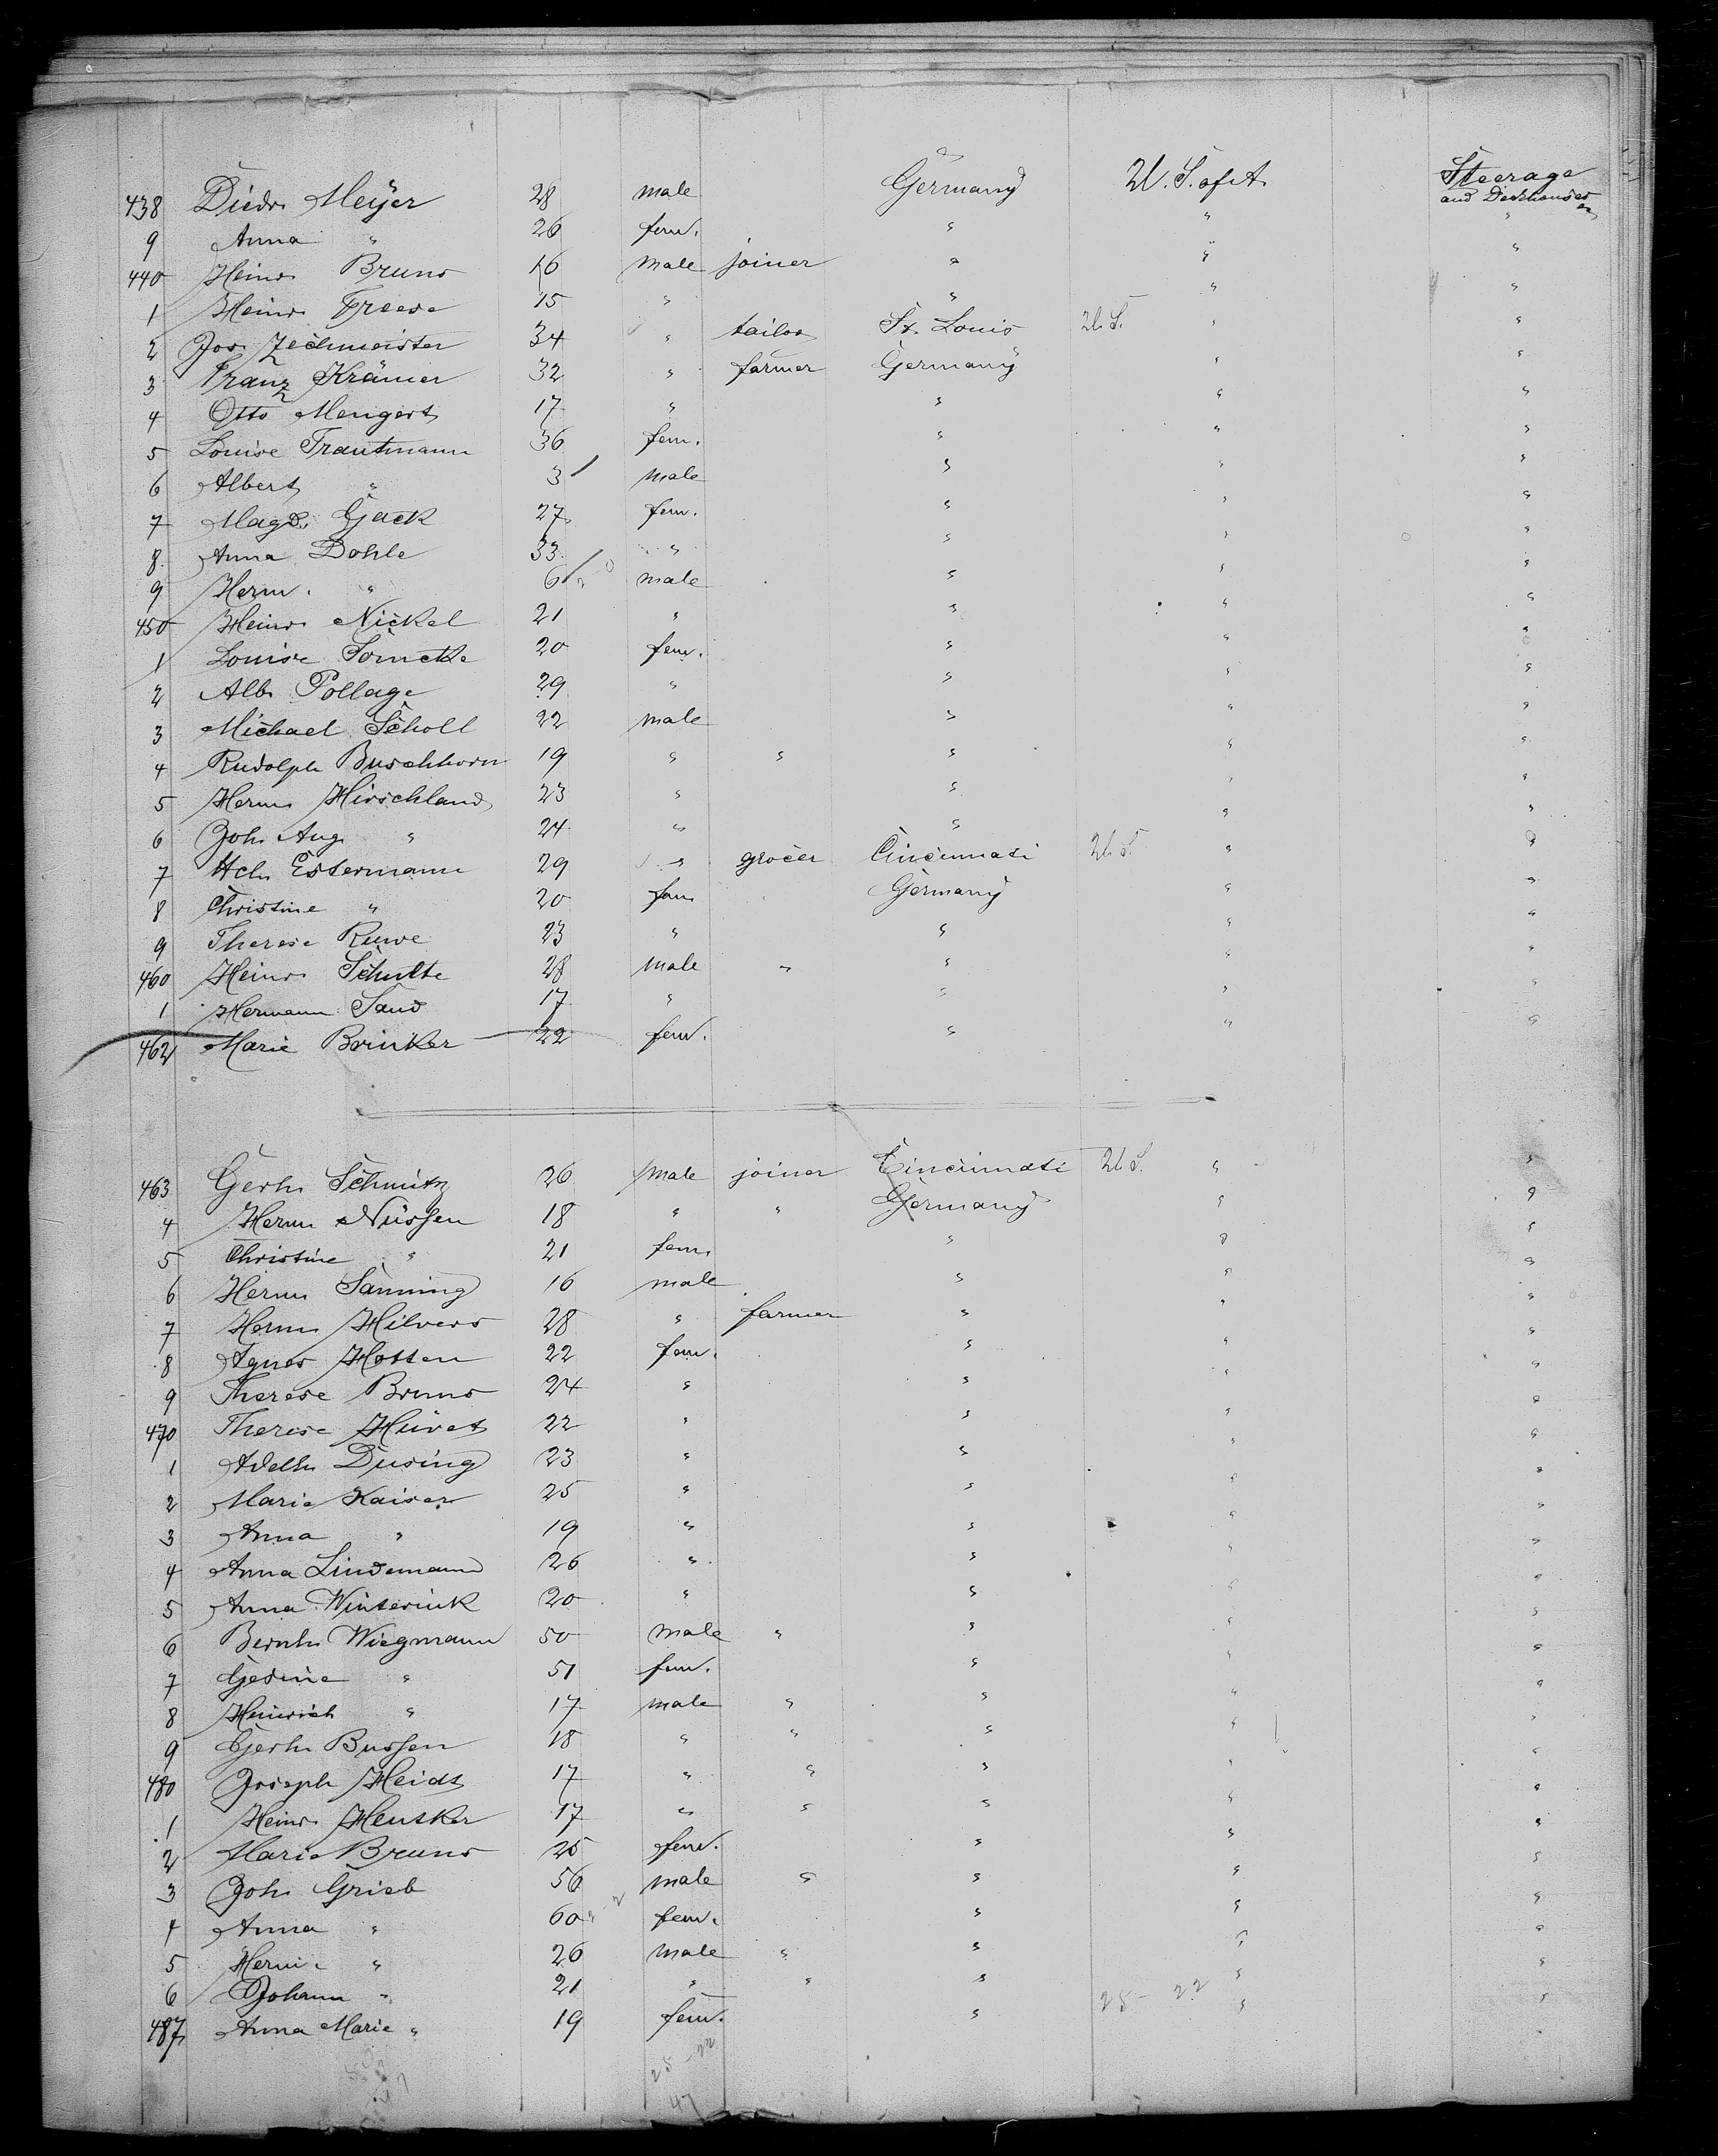 438 Diedr. Meÿer 28 male Germany U. S. of A. Steerage and Deckhouses
9 Anna " 26 fem. " " "
440 Heinr. Bruns 16 male joiner " " "
1 Heinr. Freese 15 " " " "
2 Jos. Zechmeister 34 " tailor St. Louis U. S. " "
3 Franz Krämer 32 " farmer Germany " "
4 Otto Mengert 17 " " " "
5 Louise Trautmann 36 fem. " " "
6 Albert " 3 male " " "
7 Magd. Gack 27 fem. " " "
8 Anna Dohle 33 " " " "
9 Herm. " 6 male " " "
450 Heinr. Nickel 21 " " " "
1 Louise 20 fem. " " "
2 Alb. Pollage 29 " " " "
3 Michael Scholl 22 male " " "
4 Rudolph Buschhorn 19 " " " " "
5 Herm. Hirschland 23 " " " "
6 Joh. Aug. " 24 " " " "
7 Hch. Estermann 29 " grocer Cincinnati U. S. " "
8 Christine " 20 fem Germany " "
9 Therese Ruwe 23 " " " "
460 Heinr. Schulte 28 male " " " "
1 Hermann Sand 17 " " " "
462 Marie Brinker 22 fem. " " "
463 Gerh. Schmitz 26 male joiner Cincinnati U. S. " "
4 Herm. Nüssen 18 " " Germany " "
5 Christine " 21 fem. " " "
6 Herm. Sanning 16 male " " "
7 Herm. Hilvers 28 " farmer " " "
8 Agnes Hotten 22 fem. " " "
9 Therese Bruns 24 " " " "
470 Therese 22 " " " "
1 Adelh. Dusing 23 " " " "
2 Marie Kaiser 25 " " " "
3 Anna " 19 " " " "
4 Anna Lindemann 26 " " " "
5 Anna Winterink 20 " " " "
6 Bernh. Wiegmann 50 male " " " "
7 Gesine " 51 fem. " " "
8 Heinrich " 17 male " " " "
9 Gerh. Bussen 18 " " " " "
480 Joseph Heidt 17 " " " " "
1 Heinr. Heusker 17 " " " " "
2 Marie Bruns 25 fem. " " "
3 Joh. Grieb 56 male " " " "
4 Anna " 60 fem. " " "
5 Herm. " 26 male " " " "
6 Johann " 21 " " " " "
487 Anna Marie " 19 fem. " 25 - 22 " "
25 - 22
47